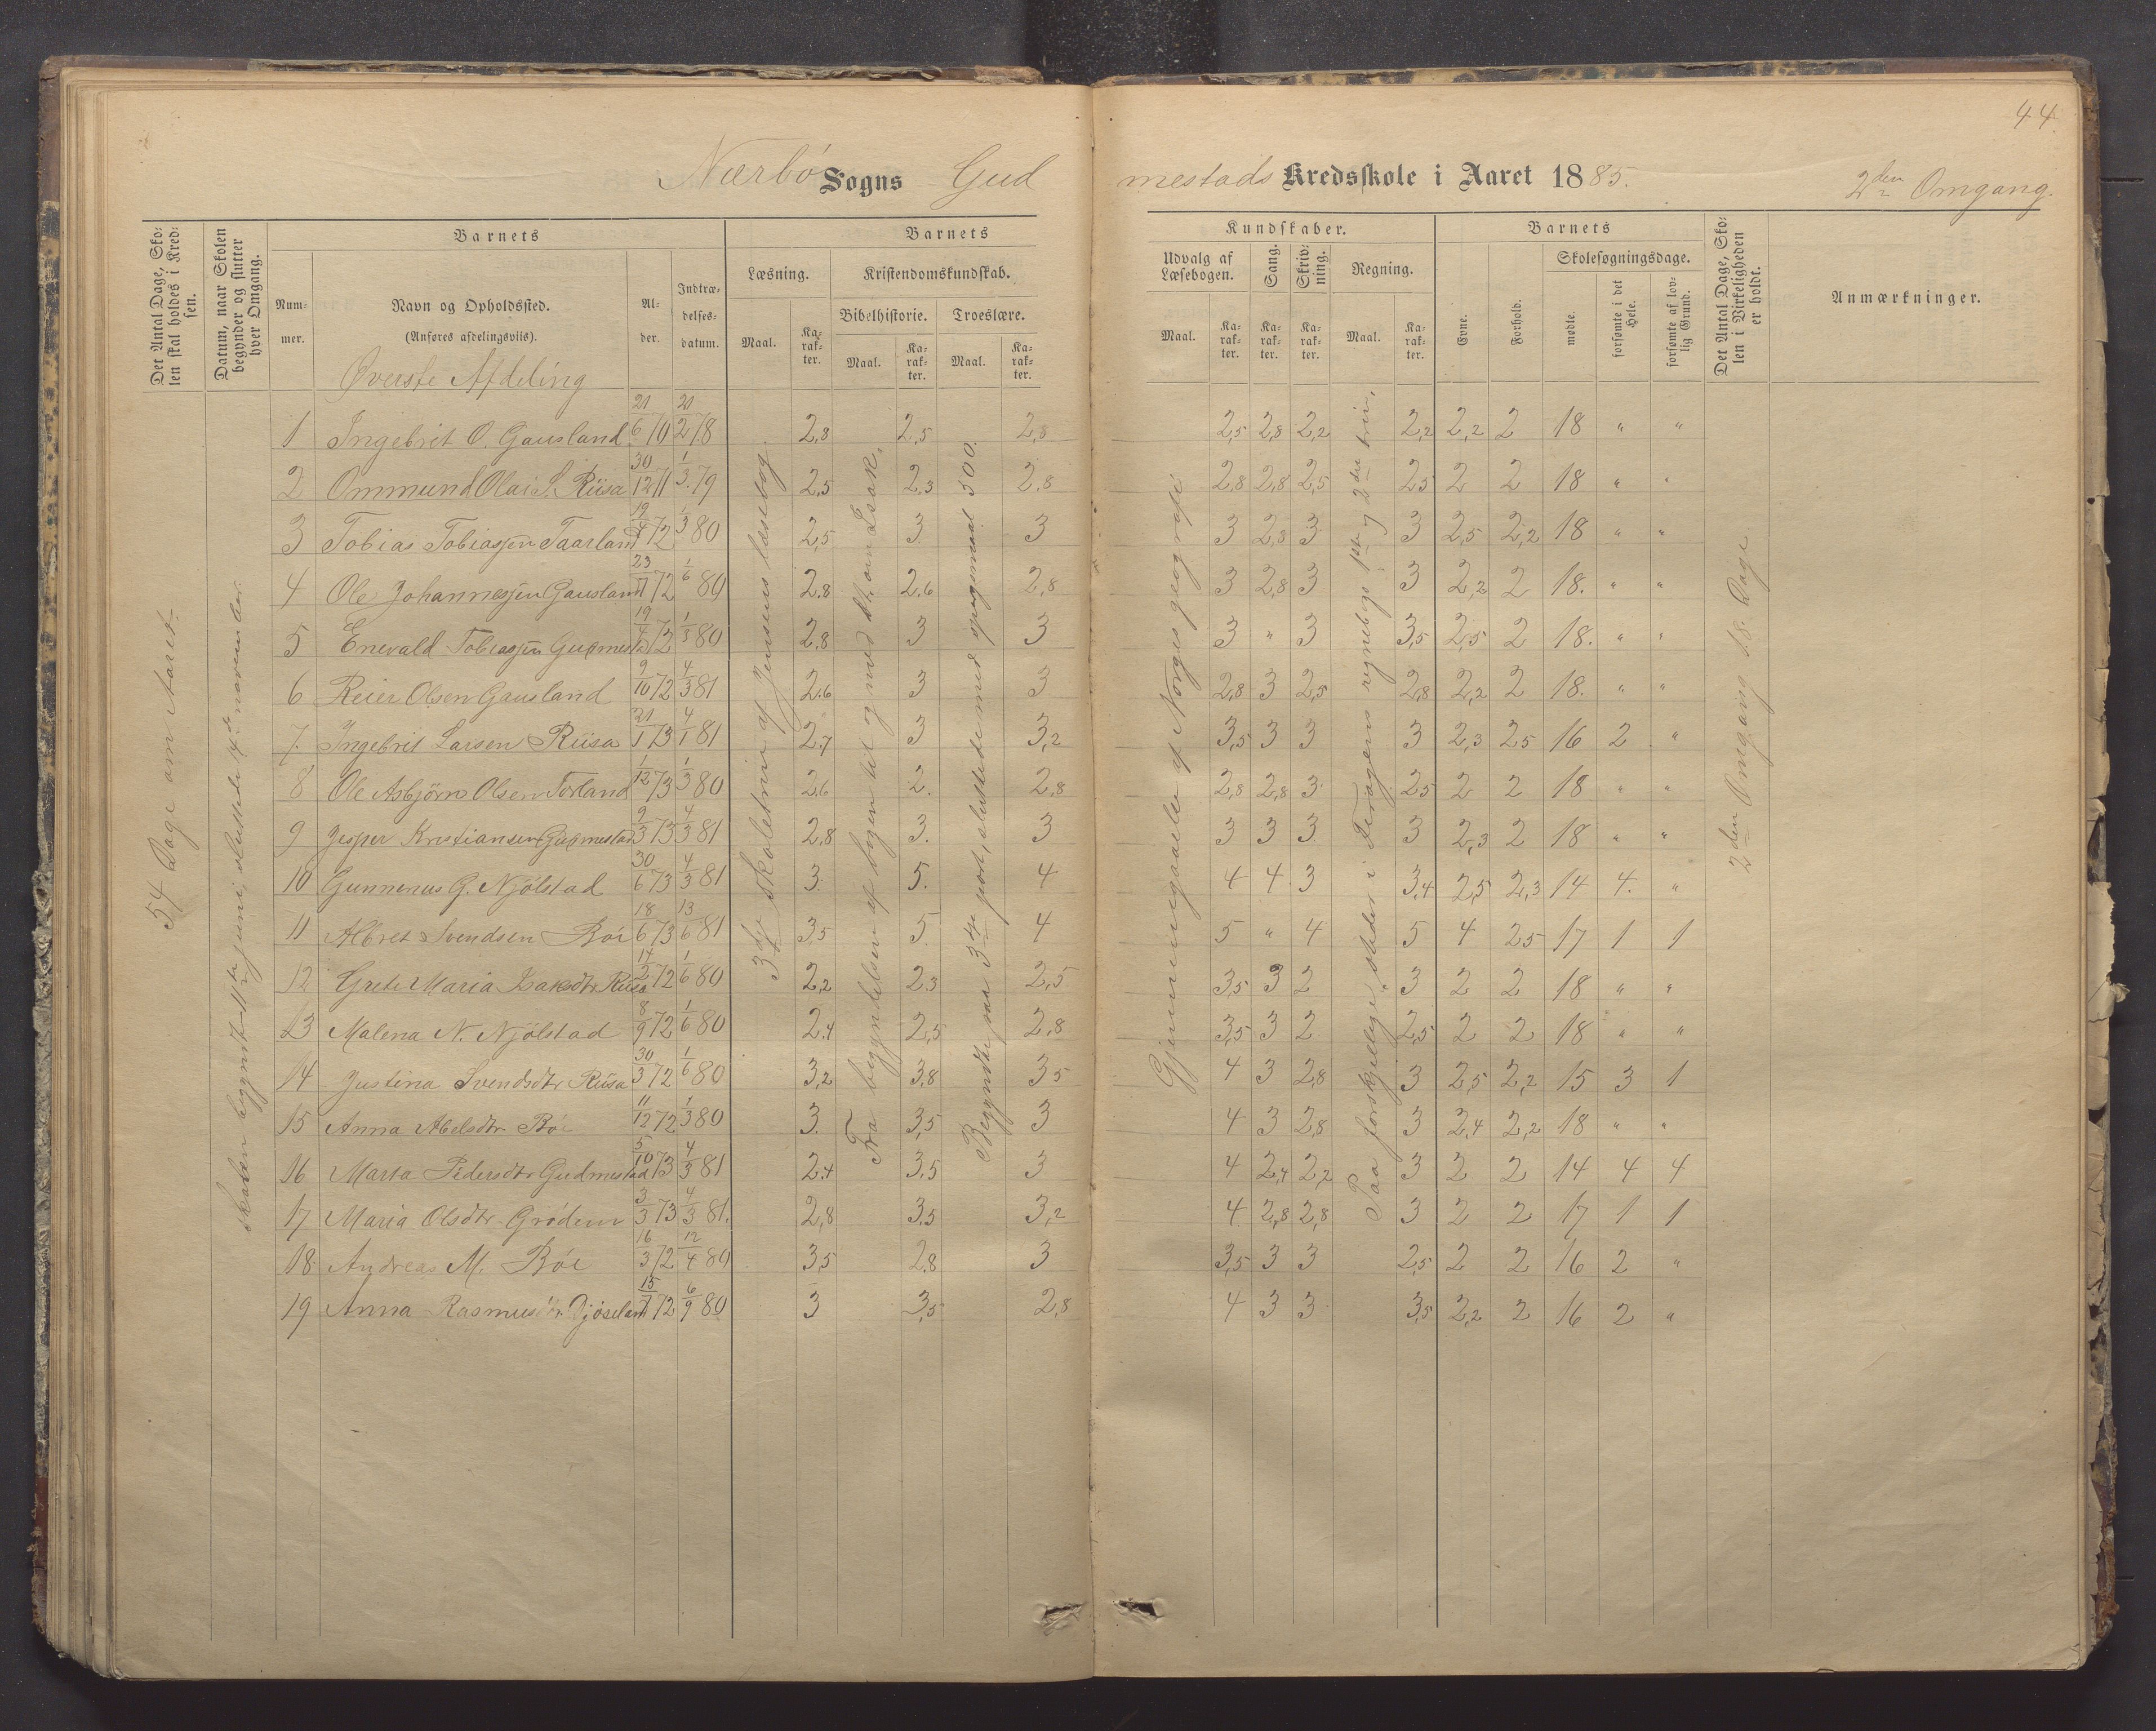 44.
Nærbö Sogns Gudmestads Kredsskole i Aaret 1885. 2den Omgang.
Det Antal Dage, Skolen skal holdes i Kredsen.
Datum, naar Skolen begynder og slutter hver Omgang.
Barnets
Nummer.
Navn og Opholdssted.
(Anføres afdelingsviis).
Alder.
Indtrædelsesdatum.
Barnets Kundskaber.
Læsning.
Maal. Karakter.
Kristendomskundskab.
Bibelhistorie. Troeslære.
Maal. Karakter. Maal. Karakter.
Udvalg af Læsebogen.
Maal. Karakter.
Sang. Karakter.
Skrivning. Karakter.
Regning.
Maal. Karakter.
Barnets
Evne. Forhold.
Skolesøgningsdage.
mødte. forsømte i det Hele. forsømte af lovlig Grund.
Det Antal Dage, Skolen i Virkeligheden er holdt.
Anmærkninger.
Øverste Afdeling
54 Dage om Aaret.
3die Skoletrin af Jensens læsebog.
Gjennemgaaelse af Norges geografi
2den Omgang 18 Dage
1 Ingebrit O. Gausland 21/6 70 21/2 78 2,8 2,5 2,8 2,5 2,8 2,2 2,2 2,2 2 18 " "
2 Ommund Olai S. Riisa 30/12 71 1/3 79 2,5 2,3 2,8 2,8 2,8 2,5 2,5 2 2 18 " "
3 Tobias Tobiassen Taarland 19/4 72 1/3 80 2,5 3 3 3 2,8 3 3 2,5 2,2 18 " "
4 Ole Johannessen Gausland 23/11 72 1/6 80 2,8 2,6 2,8 3 2,8 3 3 2,2 2 18. " "
5 Enevald Tobiassen Gudmestad 19/4 72 1/3 80 2,8 3 3 3 " 3 3,5 2,5 2 18. " "
6 Reier Olsen Gausland 9/10 72 4/3 81 2,6 3 3 2,8 3 2,5 2,8 2,2 2 18. " "
7. Ingebrit Larsen Riisa 21/1 73 4/1 81 2,7 3 3,2 3,5 3 3 3 2,3 2,5 16 2 "
8 Ole Asbjörn Olsen Torland 1/12 73 1/3 80 2,6 2. 2,8 2,8 2,8 3 2,5 2 2 18 " "
9 Jesper Kristiansen Gudmestad 9/3 73 4/3 81 2,8 3. 3 3 3 3 3 2,3 2 18 " "
10 Gunnerus G. Njölstad 30/6 73 4/3 81 3. 5. 4 4 4 3 3,4 2,5 2,3 14 4. "
11 Albret Svendsen Böe 18/6 73 13/6 81 3,5 5. 4 5 " 4 5 4 2,5 17 1 1
12 Grete Maria Isaksdtr Riisa 14/2 72 1/6 80 2,2 2,3 2,5 3,5 3 2 3 2 2 18 " "
13 Malena N. Njölstad 8/9 72 1/6 80 2,4 2,5 2,8 3,5 3 2 2,5 2 2 18 " "
14 Justina Svendsdtr Riisa 30/3 72 1/6 80 3,2 3,8 3,5 4 3 2,8 3 2,5 2,2 15 3 1
15 Anna Abelsdtr Böe 11/12 72 1/3 80 3. 3,5 3 4 3 2,8 3 2,4 2,2 18 " "
16 Marta Pedersdtr Gudmestad 5/10 73 4/3 81 2,4 3,5 3 4 2,4 2,2 3 2 2 14 4 4
17 Maria Olsdtr Grödem 3/3 73 4/3 81. 2,8 3,5 3,2 4 2,8 2,8 3 2 2 17 1 1
18. Andreas M. Böe 16/3 72 12/4 80 3,5 2,8 3 3,5 3 3 2,5 2 2 16 2 "
19 Anna Rasmusdtr. Djöseland 15/7 72 6/9 80 3 3,5 2,8 4 3 3 3,5 2,2 2 16 2 "